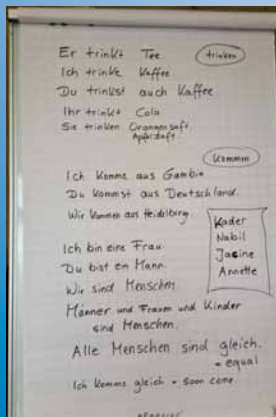 Er trinkt Tee trinken
Ich trinke Kaffee
Du trinkst auch Kaffee
Ihr trinkt Cola
Sie trinken Orangensaft
Apfelsaft
Kommen
Ich komme aus Gambia
Du kommst aus Deutschland.
Wir kommen aus Heidelberg.
Kader
Nabil
Jasine
Annette
Ich bin eine Frau.
Du bist ein Mann.
Wir sind Menschen.
Männer und Frauen und Kinder
sind Menschen.
Alle Menschen sind gleich.
= equal
Ich komme gleich = soon come.